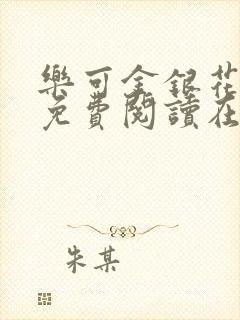 樂可金銀花
免費閱讀在
朱某